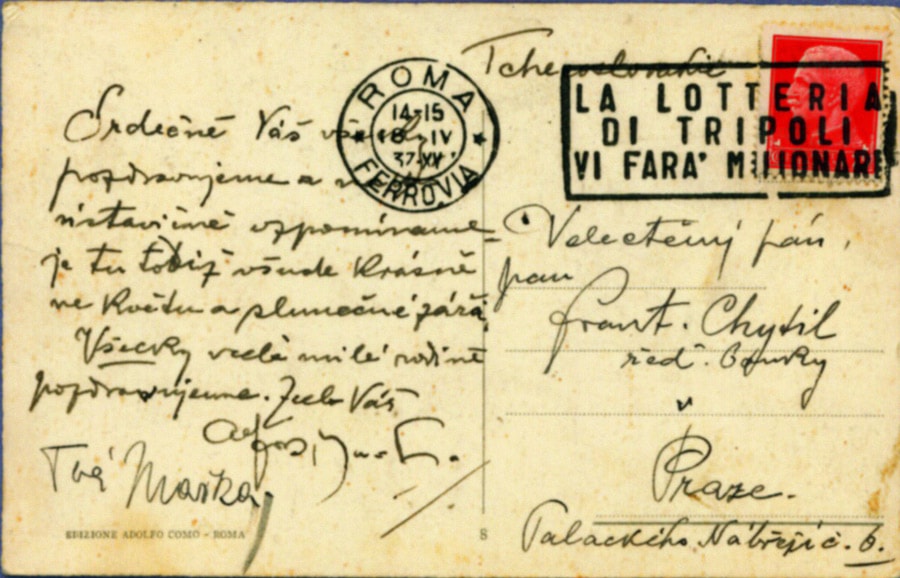 Tchecoslovakie
ROMA
14-15
18 IV
37·XV
FERROVIA
LA LOTTERIA
DI TRIPOLI
VI FARA' MILIONARI
Srdečně Vás
pozdravujeme a
ustavičně vzpomínáme
je tu totiž všude krásně
ve květu a slunečné záři
Všecky vaší milé rodině
pozdravujeme. Zde Vás
Tvá Mařka
Velectěný pán,
pan
Frant. Chytil
řed. banky
v
Praze.
Palackého Nábřeží č. 6.
EDIZIONE ADOLFO COMO - ROMA
8